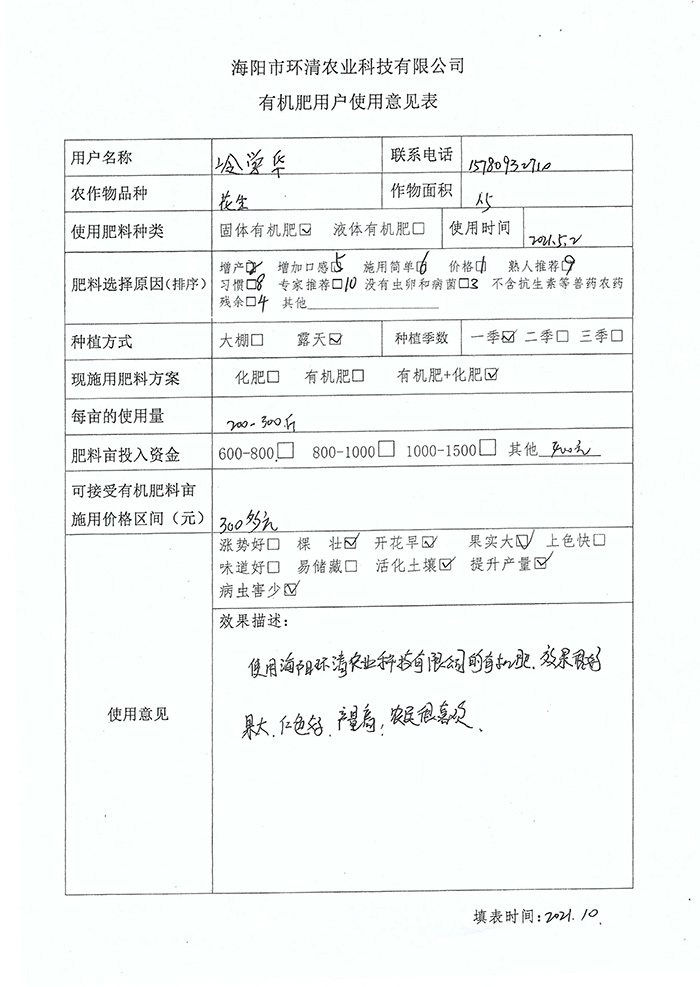 海阳市环清农业科技有限公司
有机肥用户使用意见表
用户名称 冷学华 联系电话 15780932710
农作物品种 花生 作物面积
使用肥料种类 固体有机肥☑ 液体有机肥□ 使用时间 2021.5.2
肥料选择原因(排序) 增产□2 增加口感□5 施用简单□6 价格□1 熟人推荐□9
习惯□8 专家推荐□10 没有虫卵和病菌□3 不含抗生素等兽药农药
残余□4 其他
种植方式 大棚□ 露天☑ 种植季数 一季☑ 二季□ 三季□
现施用肥料方案 化肥□ 有机肥□ 有机肥+化肥☑
每亩的使用量 200-300斤
肥料亩投入资金 600-800□ 800-1000□ 1000-1500□ 其他 400元
可接受有机肥料亩
施用价格区间（元） 300多元
使用意见
涨势好□ 棵 壮☑ 开花早☑ 果实大☑ 上色快□
味道好□ 易储藏□ 活化土壤☑ 提升产量☑
病虫害少☑
效果描述：
使用海阳环清农业科技有限公司的有机肥.效果很好
果大.仁色好.产量高,农民很喜欢、
填表时间：2021.10.